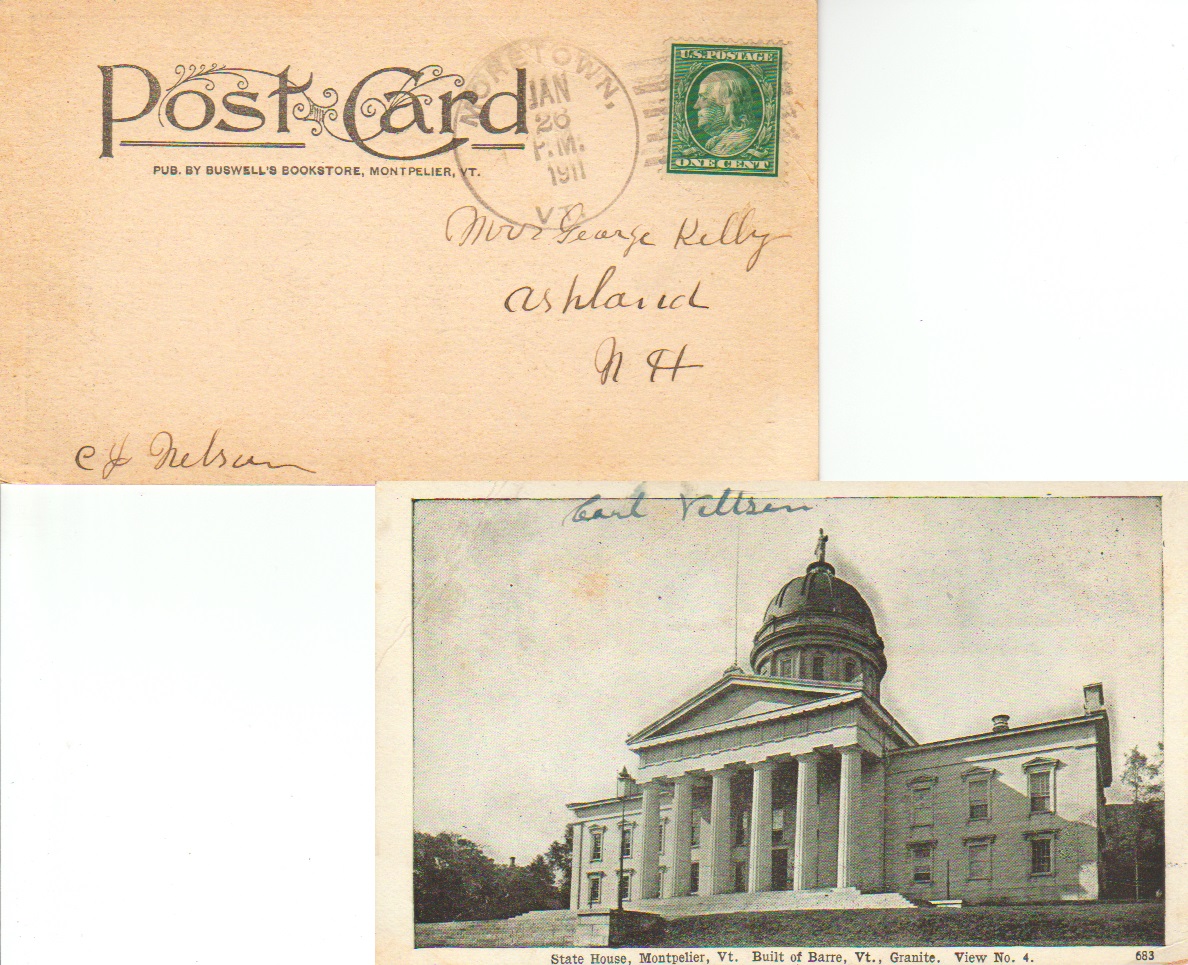 Post Card
PUB. BY BUSWELL'S BOOKSTORE, MONTPELIER, VT.
MORETOWN,
JAN
26
P.M.
1911
VT.
U.S. POSTAGE
ONE CENT
George Kelly
Ashland
N H
Nelson
Carl
State House, Montpelier, Vt. Built of Barre, Vt., Granite. View No. 4. 683